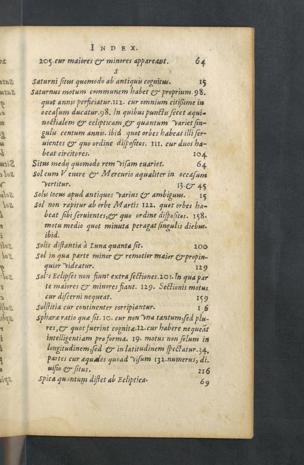 INDEX.
205. cur maiores & minores appareant. 64
S
Saturni situs quomodo ab antiquis cognitus. 15
Saturnus motum communem habet & proprium. 98.
quot annis perficiatur. 112. cur omnium citissime in
occasum ducatur. 98. In quibus punctis secet æqui-
noctialem & eclipticam, & quantum variet sin-
gulis centum annis. ibid quot orbes habeat illi ser-
uientes & quo ordine dispositos. 111. cur duos ha-
beat circitores. 104
Situs medij quomodo rem visam euariet. 64
Sol cum Venere & Mercurio æqualiter in occasum
vertitur. 13. & 45
Solis locus apud antiquos varius & ambiguus. 15
Sol non rapitur ab orbe Martis 122. quot orbes ha-
beat sibi seruientes, & quo ordine dispositos. 158.
motu medio quot minuta peragat singulis diebus.
ibid.
Solis distantia à Luna quanta sit. 100
Sol in qua parte minor & remotior maior & propin-
quior videatur. 129
Solis Eclipses non fiunt extra sectiones. 201. In qua par
te maiores & minores fiant. 129. Sectionis motus
cur discerni nequeat. 159
Solstitia cur continenter corripiantur. 16
Sphæræ ratio quæ sit. 10. cur non vna tantum sed plu-
res, & quot fuerint cognitæ. 12. cur habere nequeat
intelligentiam pro forma. 19. motus non solum in
longitudinem, sed & in latitudinem spectatur. 34.
partes cur æquales quoad visum 132. numerus, di-
uisio & situs. 216
Spica quantum distet ab Ecliptica. 69